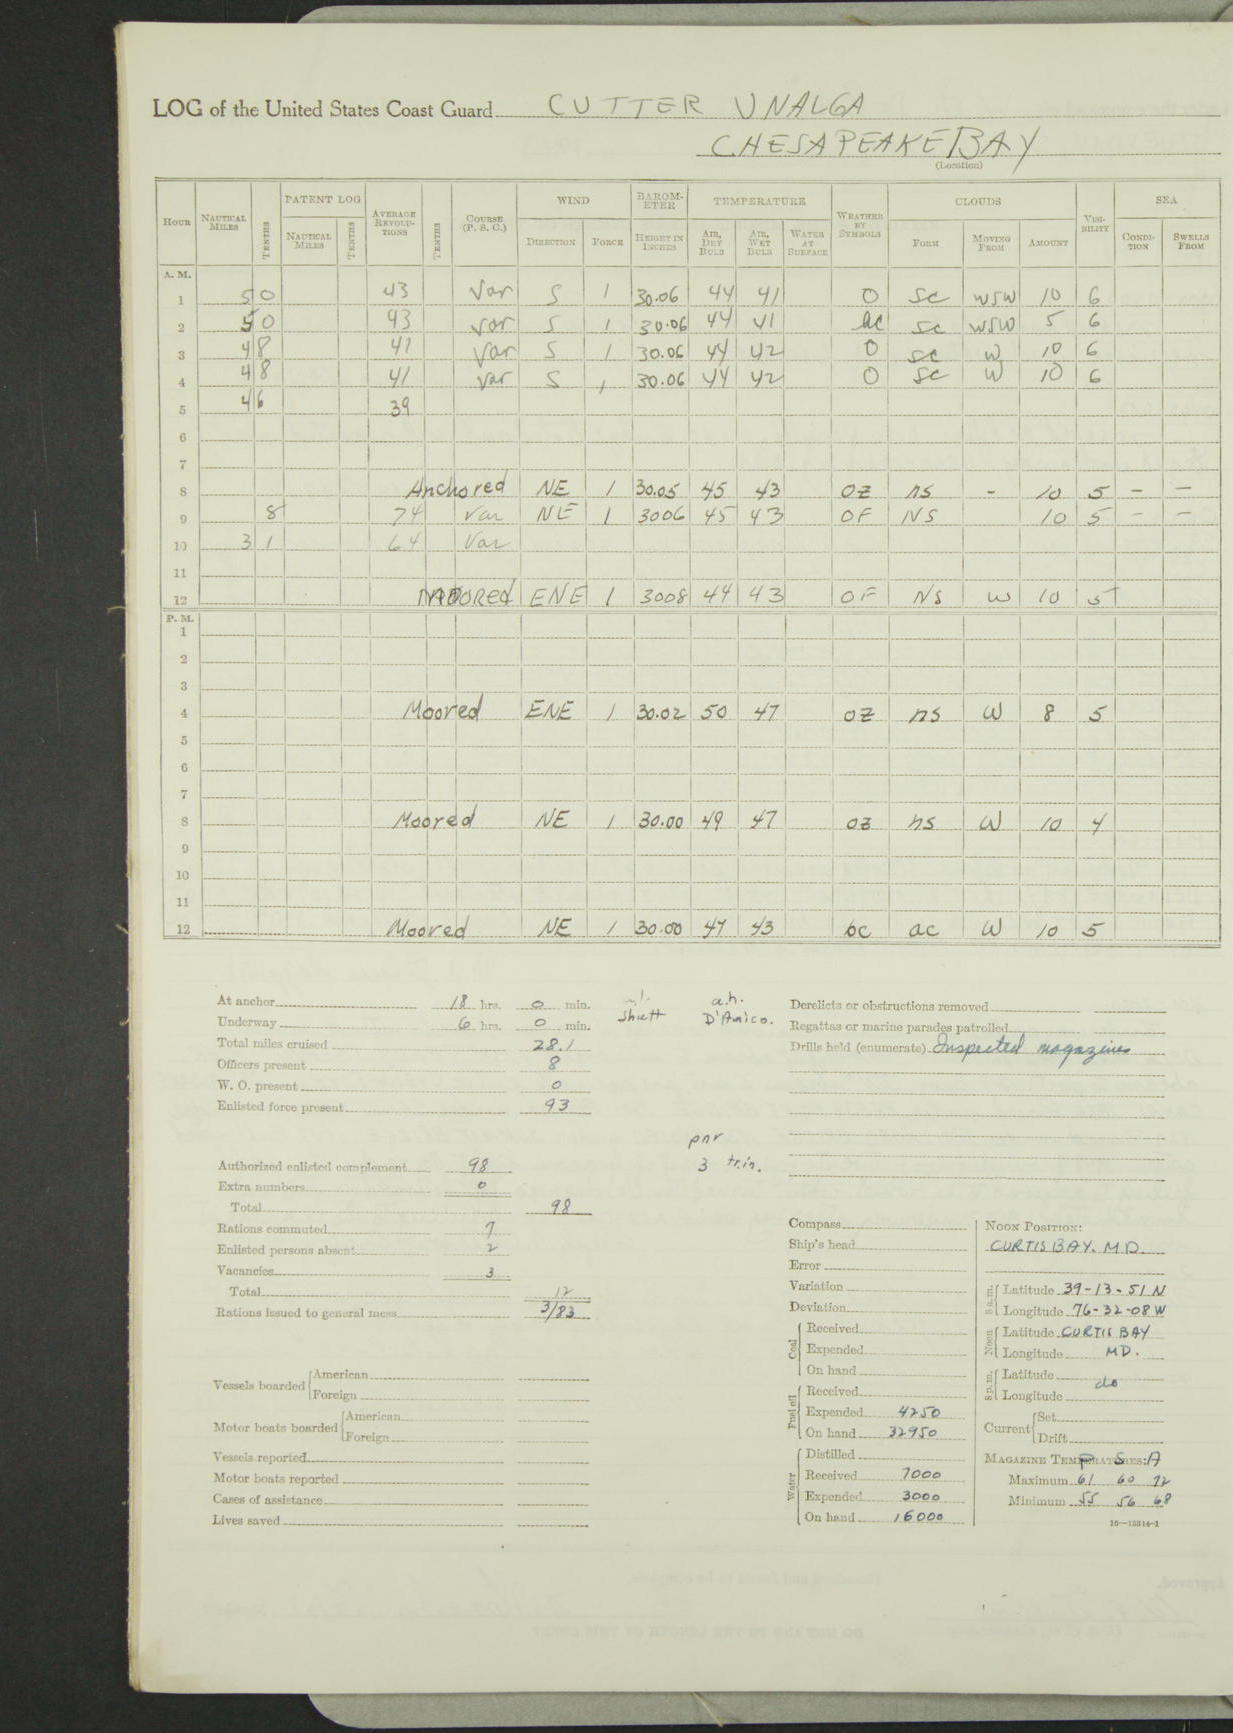 LOG of the United States Coast Guard CUTTER UNALGA
CHESAPEAKE BAY
(Location)
HOUR NAUTICAL MILES TENTHS PATENT LOG NAUTICAL MILES TENTHS AVERAGE REVOLUTIONS TENTHS COURSE (P. S. C.) WIND DIRECTION FORCE BAROMETER HEIGHT IN INCHES TEMPERATURE AIR, DRY BULB AIR, WET BULB WATER AT SURFACE WEATHER BY SYMBOLS CLOUDS FORM MOVING FROM AMOUNT VISIBILITY SEA CONDITION SWELLS FROM
A. M.
1 5 0 43 Var S 1 30.06 44 41 O Sc WSW 10 6
2 5 0 43 Var S 1 30.06 44 41 bc Sc WSW 5 6
3 4 8 41 Var S 1 30.06 44 42 O Sc W 10 6
4 4 8 41 Var S 1 30.06 44 42 O Sc W 10 6
5 4 6 39
6
7
8 Anchored NE 1 30.05 45 43 OZ ns - 10 5 - -
9 8 74 Var NE 1 3006 45 43 OF NS 10 5 - -
10 3 1 64 Var
11
12 MOORED ENE 1 3008 44 43 OF NS W 10 5
P. M.
1
2
3
4 Moored ENE 1 30.02 50 47 OZ ns W 8 5
5
6
7
8 Moored NE 1 30.00 49 47 OZ ns W 10 4
9
10
11
12 Moored NE 1 30.00 47 43 bc ac W 10 5
At anchor 18 hrs. 0 min.
Underway 6 hrs. 0 min.
Total miles cruised 28.1
Officers present 8
W. O. present 0
Enlisted force present 93
a.h.
D'Amico.
pnr
3 trin.
Authorized enlisted complement 98
Extra numbers 0
Total 98
Rations commuted 7
Enlisted persons absent 2
Vacancies 3
Total 12
Rations issued to general mess 3/83
Vessels boarded American
Foreign
Motor boats boarded American
Foreign
Vessels reported
Motor boats reported
Cases of assistance
Lives saved
Derelicts or obstructions removed
Regattas or marine parades patrolled
Drills held (enumerate) Inspected magazines
Compass
Ship's head
Error
Variation
Deviation
Coal Received
Expended
On hand
Fuel oil Received
Expended 4250
On hand 32950
Water Distilled
Received 7000
Expended 3000
On hand 16000
NOON POSITION:
CURTIS BAY. MD.
8 a.m. Latitude 39-13-51 N
Longitude 76-32-08 W
Noon Latitude CURTIS BAY
Longitude MD.
8 p.m. Latitude
do
Longitude
Current Set
Drift
MAGAZINE TEMPERATURES: P S A
Maximum 61 60 72
Minimum 55 56 68
16—13314-1